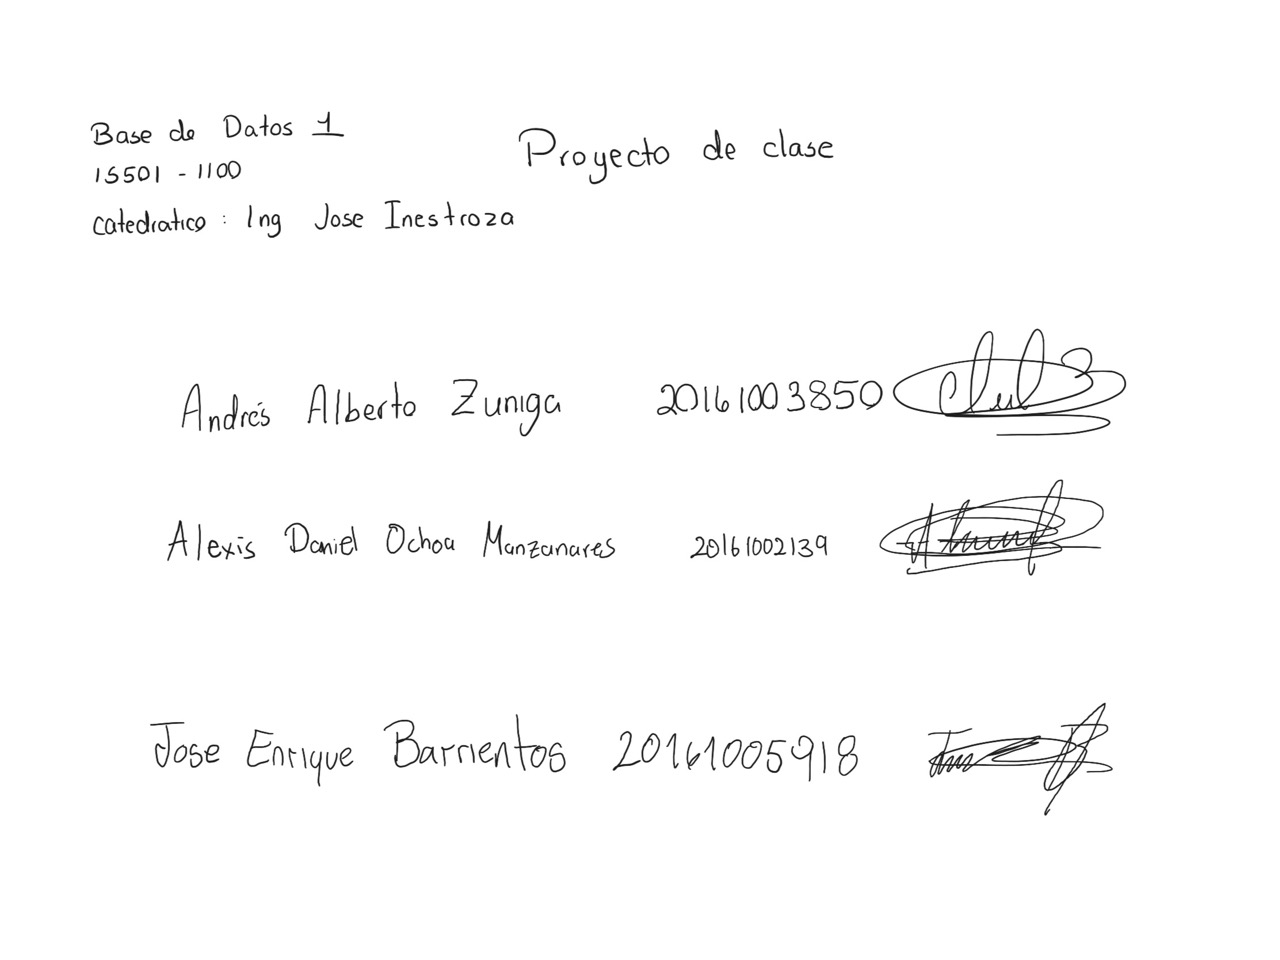 Base de Datos 1
Proyecto de clase
IS501 - 1100
catedratico : Ing Jose Inestroza
Andrés Alberto Zuniga 20161003850
Alexis Daniel Ochoa Manzanares 20161002139
Jose Enrique Barrientos 20161005918